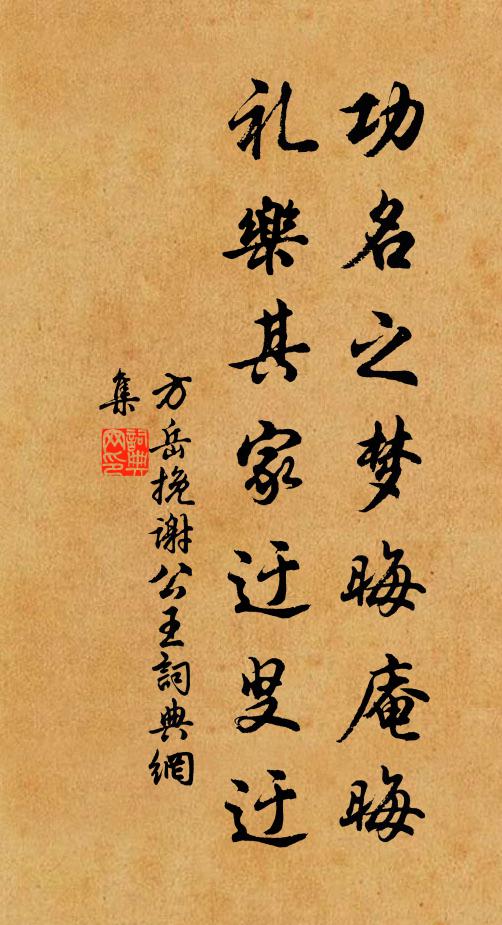 功名之梦晦庵晦
礼樂其家迂叟迂
方岳挽谢公王詞典網
集
詞典网印